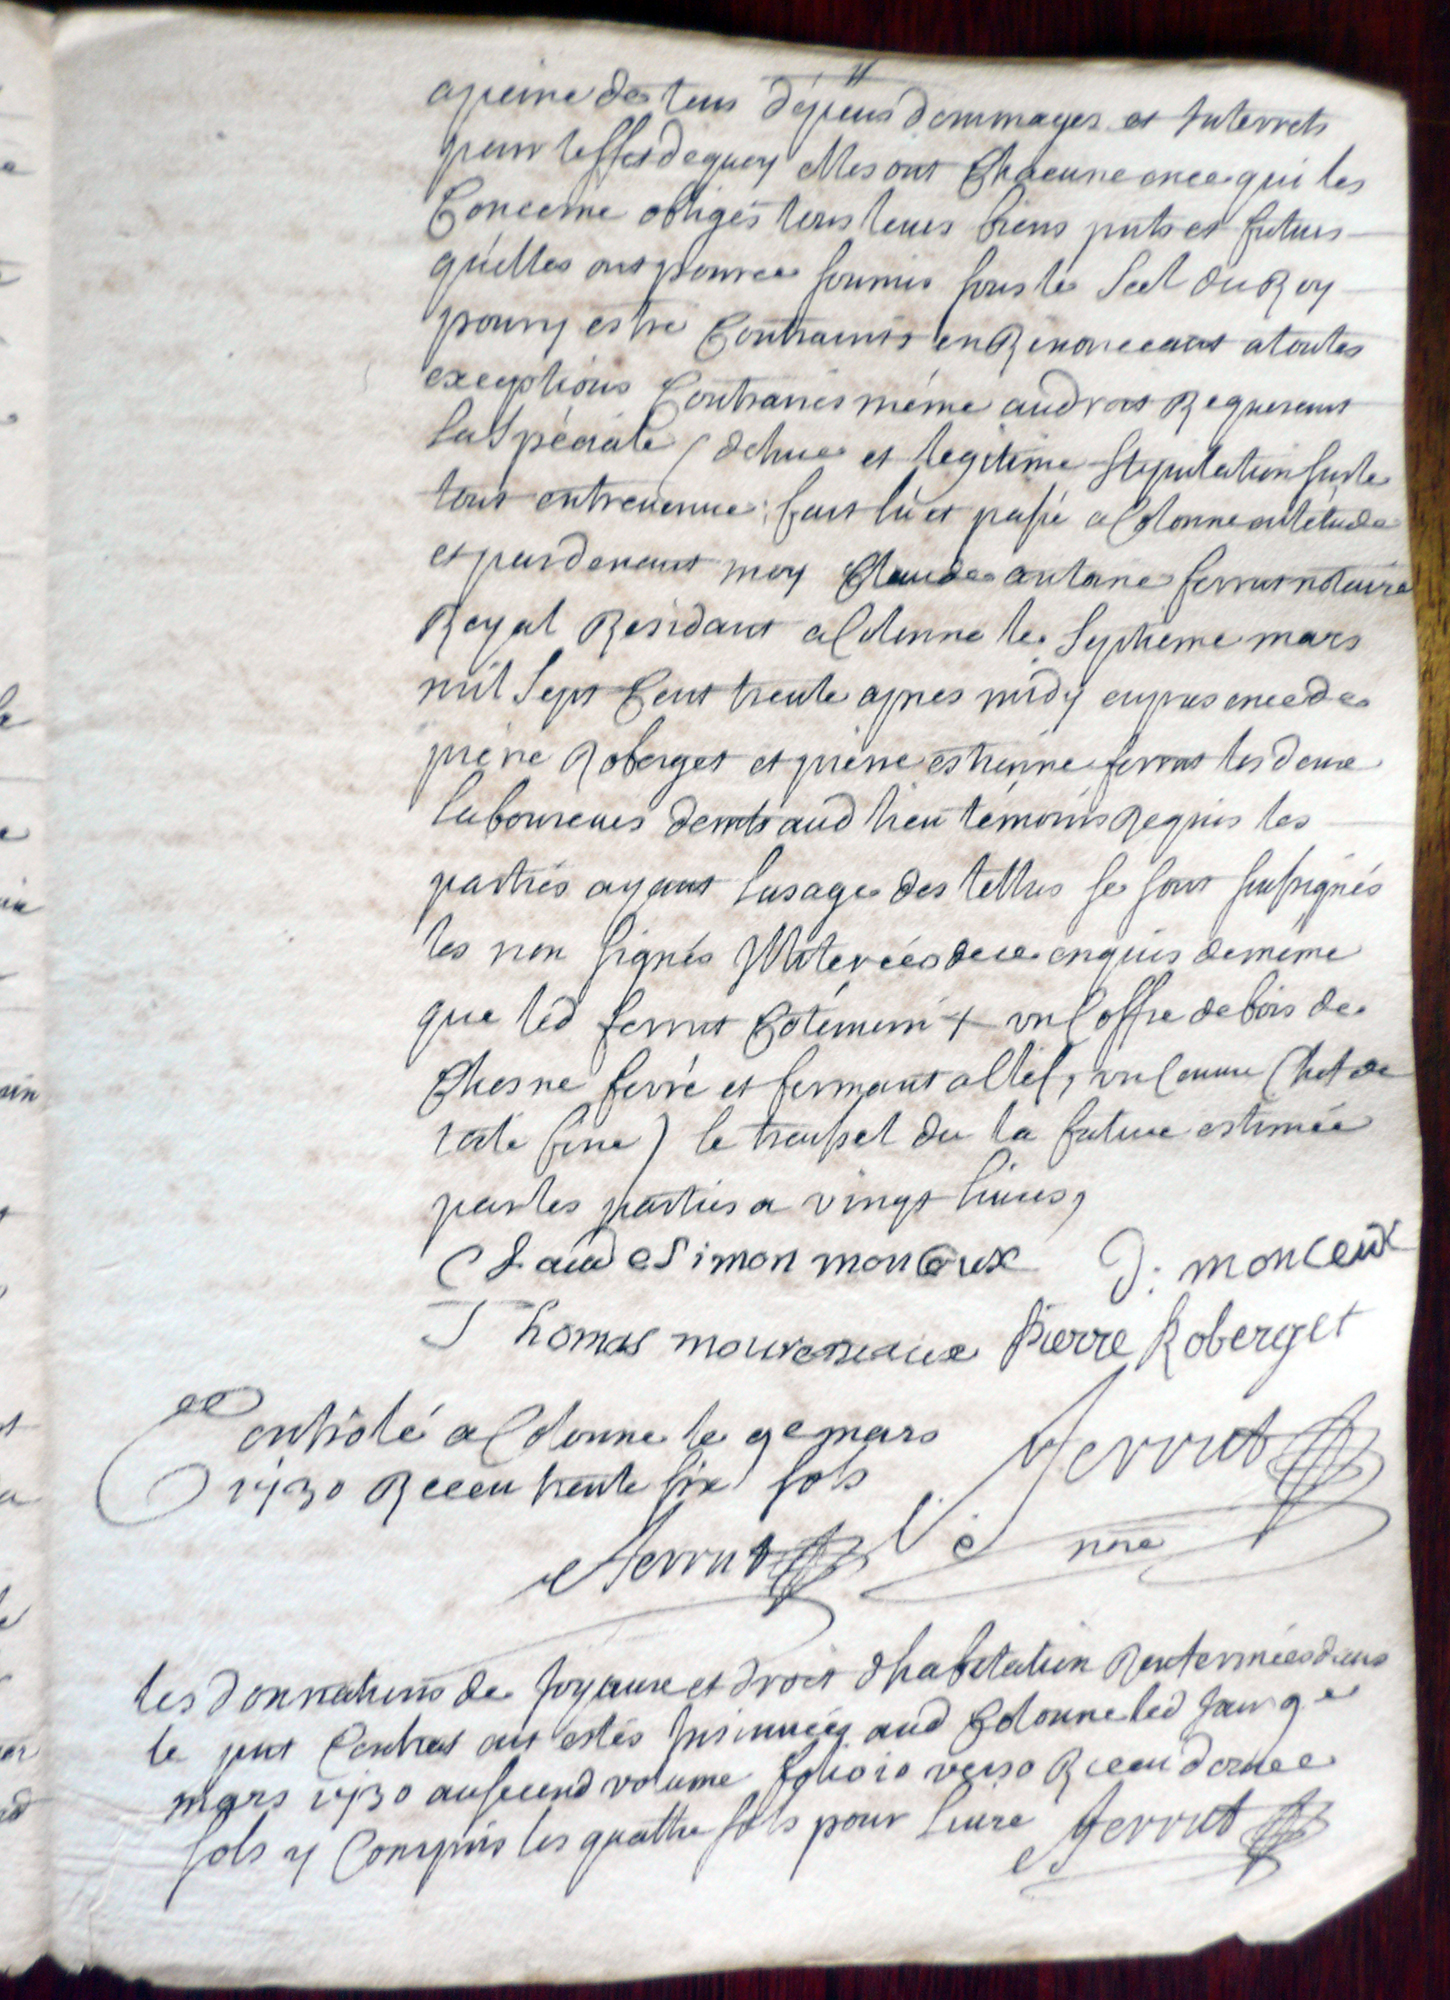 a peine de tous dépens dommages et Interrets
pour leffet de quoy elles ont Chacune en ce qui les
Concerne obligés tous leurs biens pnts et futurs
quelles ont pour ce soumis sous le Scel du Roy
pour y estre Contraints en Renonceant a toutes
exceptions Contraires méme au droit Requerant
La Spéciale / dehue et legitime Stipulation sur le
tout entrevenue; fait lû et passé a Colonne en létude
et pardevant moy Claude antoine ferrut notaire
Royal Residant a Colonne le Septieme mars
mil Sept Cent trente apres midy en presence de
pierre Roberget et pierre estienne ferrut les deux
laboureurs demts aud lieu témoins Requis les
parties ayant Lusage des lettres se sont subsignés
les non signés Illiterées de ce enquis de meme
que led ferrut Cotémoin + un Coffre de bois de
Chesne ferré et fermant a clef,
toile fine) le troussel de la future estimée
par les parties a vingt livres,
Claude Simon monceux J: monceux
Thomas Pierre Roberget
Contrôlé a Colonne le 9e mars
1730 Receu trente six sols
ferrut
ferrut
nore
les Donnations de Joyaux et droit dhabitation Renfermées dans
le pnt Contrat ont estés Insinuées aud Colonne led Jour 9e
mars 1730 au second volume folio 10 verso Receu
sols y Compris les quatre sols pour livre ferrut